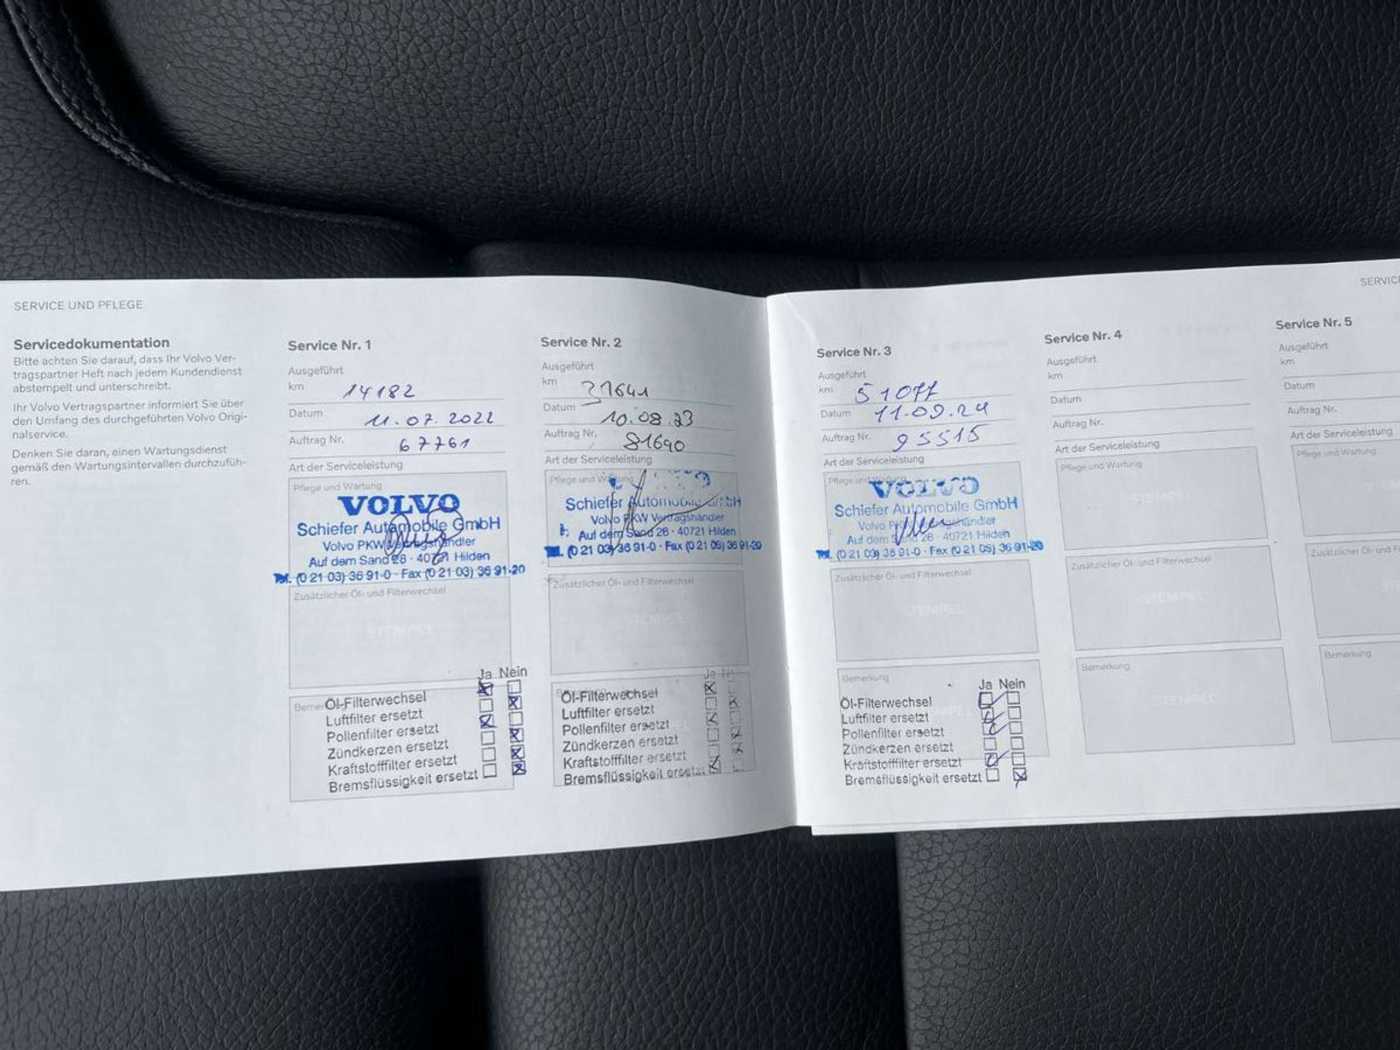 SERVICE UND PFLEGE
Servicedokumentation
Bitte achten Sie darauf, dass Ihr Volvo Ver-
tragspartner Heft nach jedem Kundendienst
abstempelt und unterschreibt.
Ihr Volvo Vertragspartner informiert Sie über
den Umfang des durchgeführten Volvo Origi-
nalservice.
Denken Sie daran, einen Wartungsdienst
gemäß den Wartungsintervallen durchzufüh-
ren.
Service Nr. 1
Ausgeführt
km 14182
Datum 11.07.2022
Auftrag Nr. 67761
Art der Serviceleistung
Pflege und Wartung
VOLVO
Schiefer Automobile GmbH
Volvo PKW Vertragshändler
Auf dem Sand 28 · 40721 Hilden
Tel. (0 21 03) 36 91-0 · Fax (0 21 03) 36 91-20
Zusätzlicher Öl- und Filterwechsel
STEMPEL
Ja Nein
Öl-Filterwechsel
Luftfilter ersetzt
Pollenfilter ersetzt
Zündkerzen ersetzt
Kraftstofffilter ersetzt
Bremsflüssigkeit ersetzt
Service Nr. 2
Ausgeführt
km 31641
Datum 10.08.23
Auftrag Nr. 81640
Art der Serviceleistung
Pflege und Wartung
Schiefer Automobile GmbH
Volvo PKW Vertragshändler
Auf dem Sand 28 · 40721 Hilden
Tel. (0 21 03) 36 91-0 · Fax (0 21 03) 36 91-20
Zusätzlicher Öl- und Filterwechsel
STEMPEL
Ja
Öl-Filterwechsel
Luftfilter ersetzt
Pollenfilter ersetzt
Zündkerzen ersetzt
Kraftstofffilter ersetzt
Bremsflüssigkeit ersetzt
SERVICE
Service Nr. 3
Ausgeführt
km 51077
Datum 11.09.24
Auftrag Nr. 95515
Art der Serviceleistung
Pflege und Wartung
VOLVO
Schiefer Automobile GmbH
Volvo PKW Vertragshändler
Auf dem Sand 28 · 40721 Hilden
Tel. (0 21 03) 36 91-0 · Fax (0 21 03) 36 91-20
Zusätzlicher Öl- und Filterwechsel
STEMPEL
Bemerkung
Ja Nein
Öl-Filterwechsel
Luftfilter ersetzt
Pollenfilter ersetzt
Zündkerzen ersetzt
Kraftstofffilter ersetzt
Bremsflüssigkeit ersetzt
Service Nr. 4
Ausgeführt
km
Datum
Auftrag Nr.
Art der Serviceleistung
Pflege und Wartung
STEMPEL
Zusätzlicher Öl- und Filterwechsel
STEMPEL
Bemerkung
STEMPEL
Service Nr. 5
Ausgeführt
km
Datum
Auftrag Nr.
Art der Serviceleistung
Pflege und Wartung
Zusätzlicher Öl- und F
Bemerkung